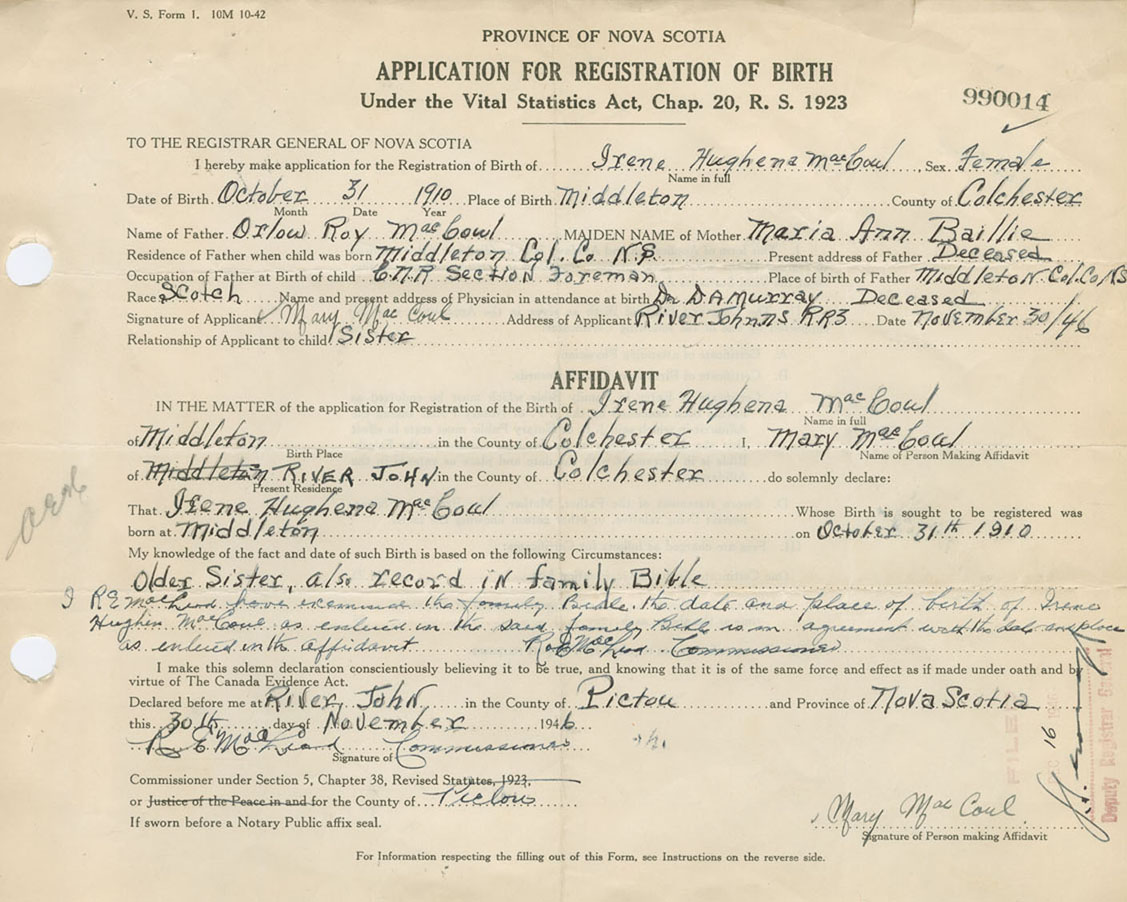 V. S. Form 1. 10M 10-42
PROVINCE OF NOVA SCOTIA
APPLICATION FOR REGISTRATION OF BIRTH
Under the Vital Statistics Act, Chap. 20, R. S. 1923
990014
TO THE REGISTRAR GENERAL OF NOVA SCOTIA
I hereby make application for the Registration of Birth of Irene Hughena MacCoul, Sex Female
Name in full
Date of Birth October 31 1910 Place of Birth Middleton County of Colchester
Month Date Year
Name of Father Orlow Roy MacCoul MAIDEN NAME of Mother Maria Ann Baillie
Residence of Father when child was born Middleton Col. Co. N.S. Present address of Father Deceased
Occupation of Father at Birth of child C.N.R Section Foreman Place of birth of Father Middleton Col. Co. NS
Race Scotch Name and present address of Physician in attendance at birth Dr DA Murray Deceased
Signature of Applicant Mary MacCoul Address of Applicant River John NS RR3 Date November 30/46
Relationship of Applicant to child Sister
AFFIDAVIT
IN THE MATTER of the application for Registration of the Birth of Irene Hughena MacCoul
Name in full
of Middleton in the County of Colchester I, Mary MacCoul
Birth Place Name of Person Making Affidavit
of Middleton RIVER JOHN in the County of Colchester do solemnly declare:
Present Residence
That Irene Hughena MacCoul Whose Birth is sought to be registered was
born at Middleton on October 31th 1910
My knowledge of the fact and date of such Birth is based on the following Circumstances:
Older Sister, also record in family Bible
I R E MacLeod have examined the family Bible the date and place of birth of Irene
Hughen MacCoul as entered in the said family Bible is in agreement with the date and place
as entered in the affidavit R E MacLeod Commissioner
I make this solemn declaration conscientiously believing it to be true, and knowing that it is of the same force and effect as if made under oath and by
virtue of The Canada Evidence Act.
Declared before me at River John in the County of Pictou and Province of Nova Scotia
this 30th day of November 1946
R E MacLeod Commissioner
Signature of
Commissioner under Section 5, Chapter 38, Revised Statutes, 1923,
or Justice of the Peace in and for the County of Pictou
If sworn before a Notary Public affix seal.
Mary MacCoul
Signature of Person making Affidavit
For Information respecting the filling out of this Form, see Instructions on the reverse side.
FILED
16
Deputy Registrar General